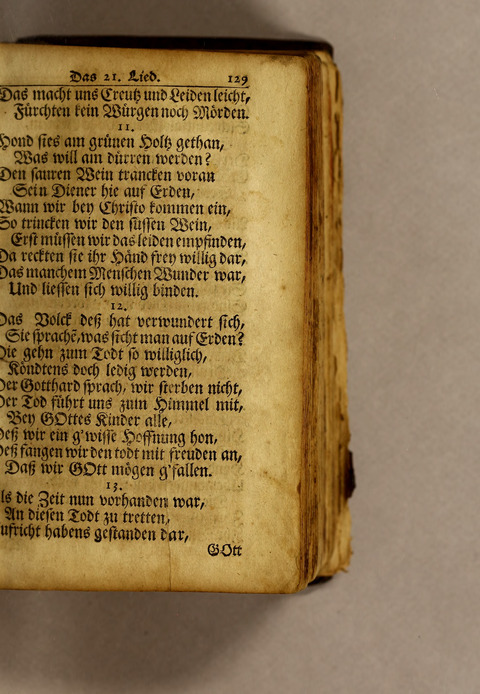 Das 21. Lied. 129
Das macht uns Creutz und Leiden leicht,
Fürchten kein Würgen noch Mörden.
11.
Hond sies am grünen Holtz gethan,
Was will am dürren werden?
Den sauren Wein trancken voran
Sein Diener hie auf Erden,
Wann wir bey Christo kommen ein,
So trincken wir den süssen Wein,
Erst müssen wir das leiden empfinden,
Da reckten sie ihr Händ frey willig dar,
Das manchem Menschen Wunder war,
Und liessen sich willig binden.
12.
Das Volck deß hat verwundert sich,
Sie sprachē, was sicht man auf Erden?
Die gehn zum Todt so williglich,
Köndtens doch ledig werden,
Der Gotthard sprach, wir sterben nicht,
Der Tod führt uns zum Himmel mit,
Bey GOttes Kinder alle,
Deß wir ein g'wisse Hoffnung hon,
Deß fangen wir den todt mit freuden an,
Daß wir GOtt mögen g'fallen.
13.
ls die Zeit nun vorhanden war,
An diesen Todt zu tretten,
ufricht habens gestanden dar,
GOtt